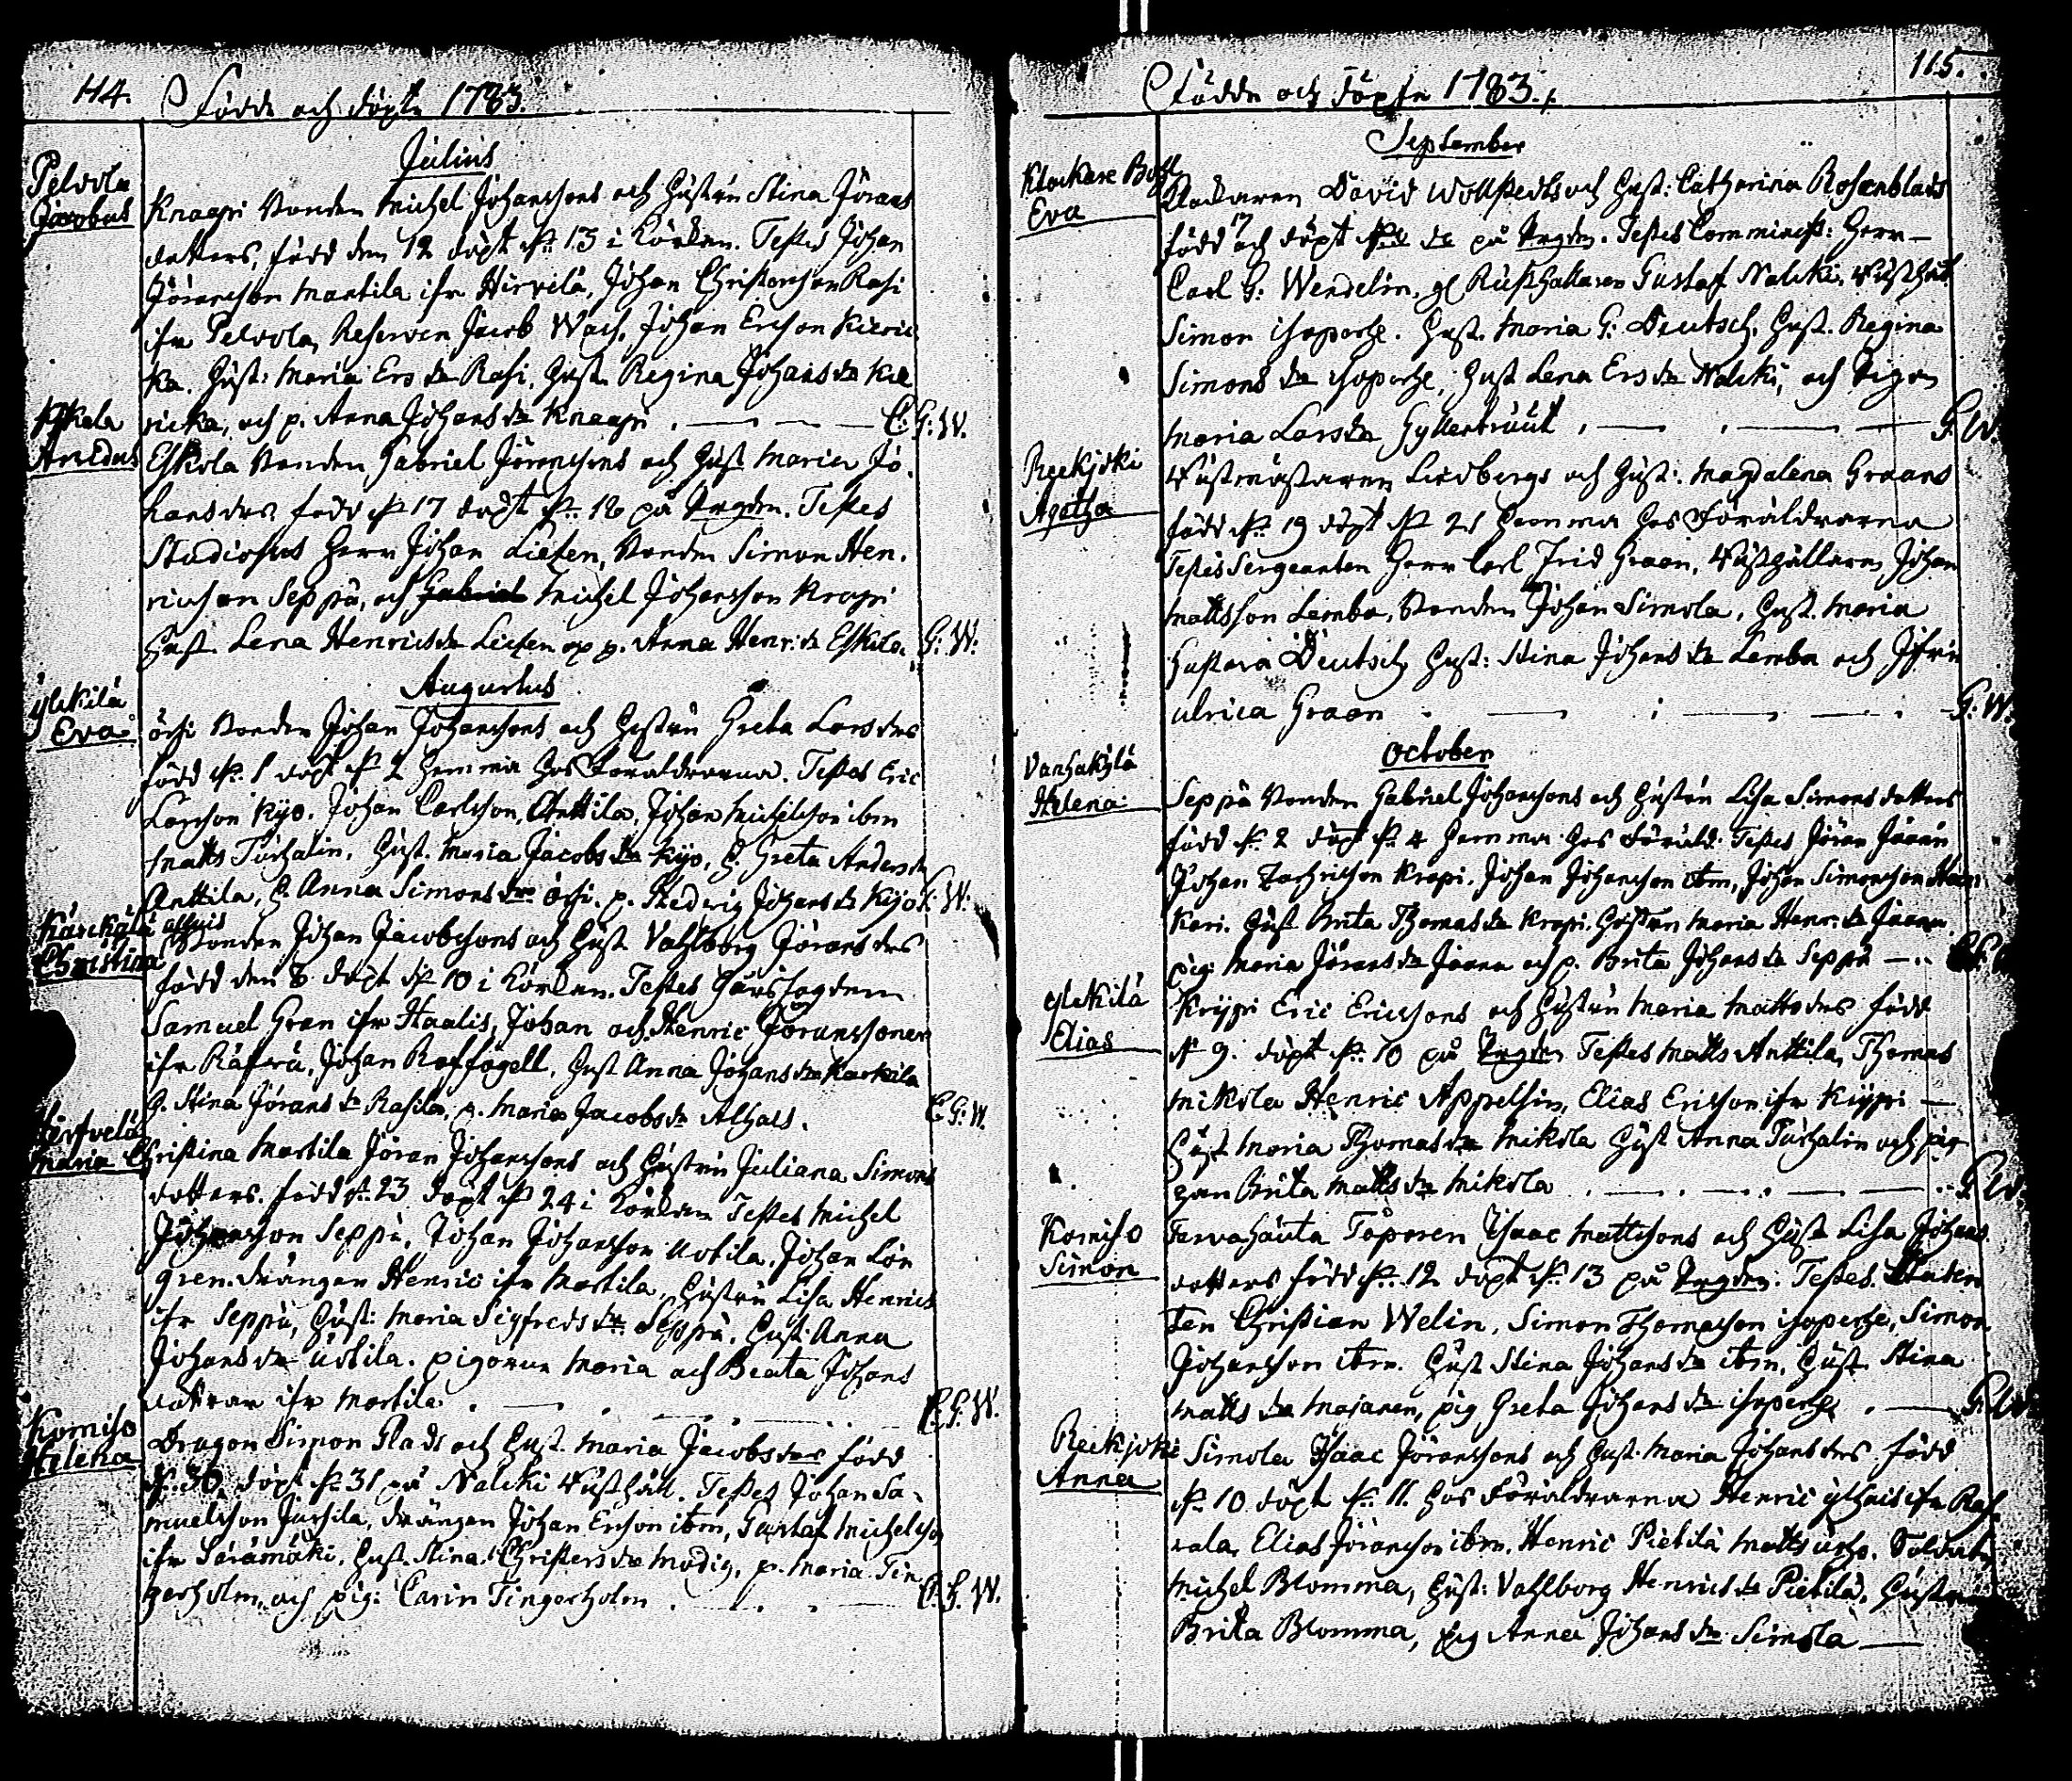 114.
Födde och döpte 1783.
Julius
Pelvola
Jacobus
Knaapi Bonden Michel Johanssons och Hustru Stina Jörans
dotters, född den 12 döpt d. 13 i Körckan. Testes Johan
Jöransson Martila ifr Hirvelä, Johan Christersson Rasi
ifr Pelvola, Reserven Jacob Wach, Johan Ersson Kieric
ka. Hust: Maria Ers dr Rasi, Hust. Regina Johans dr Kie
ricka, och p. Anna Johans dr Knaapi . — — — C:G:W.
Eskola
Anders
Eskola Bonden Gabriel Jöranssons och Hust Maria Jo-
hans drs född d 17 döpt d. 18 på Prgdn. Testes
Studiosus Herr Johan Lieten, Bonden Simon Hen-
ricsson Seppä, och Michel Johansson Krapi
Hust. Lena Henricsdr Lieten p. Anna Henr: dr Eskola G:W.
Augustus
Ylikilä
Eva
Örsi Bonden Johan Johanssons och Hustru Greta Lars drs
född d. 1 döpt d 2 hemma hos Föräldrarna. Testes Eric
Larsson Kyö. Johan Carlsson Anttila, Johan Michelsson ibm
Matts Turhalin. Hust. Maria Jacobs dr Kyö, h. Greta Anders dr
Anttila, h. Anna Simons dr Örsi. p. Hedvig Johans dr Kyö G:W.
Käriskylä
Christina
Alhais
Bonden Johan Jacobssons och Hust Vahlborg Jörans drs
född den 8 döpt d 10 i Körckan. Testes
Samuel Gran ifr Haalis, Johan och Henric Göranssoner
ifr Räfvä, Johan Roffogell, Hust Anna Johans dr Karkila
h. Stina Jörans dr Rasila, p. Maria Jacobs dr Alhais. C:G:W.
Maria Christina
Martila Jöran Johanssons och Hustru Juliana Simons
dotters. född d. 23 döpt d 24 i Körckan Testes Michel
Johansson Seppä, Johan Johansson Uotila. Johan Lön
gren. Drängen Henric ifr Martila, Hustru Lisa Henrics
ifr Seppä, Hust: Maria Sigfreds dr Seppä. Hust: Anna
Johans dr Uotila. pigorna Maria och Beata Johans
döttrar ifr Martila . — . — . — C:G:W.
Komiso
Helena
Dragon Simon Glads och Hust. Maria Jacobs drs född
d. 30, döpt d. 31 på Nalcki Rusthåll. Testes Johan Sa-
muelsson Jussila, drängen Johan Ersson ibm, Gustaf Michelsson
ifr Särämäki, Hust. Stina Christers dr Modig, p. Maria Tin
gerholm, och pig: Carin Tingerholm . — . — C:G:W.
115.
Födde och Döpte 1783.
September
Klockare Bohl
Eva
Klockaren David Wollstedts och Hust: Catharina Rosenblads
född 17 och döpt på Prgdn. Testes Comminist: Herr
Carl G: Wendelin, gl Rusthållaren Gustaf Nalcki, Rusthål
Simon Isoperhe. Hust. Maria G: Deutsch, Hust. Regina
Simons dr Isoperhe, Hust Lena Ers dr Nalcki, och Pigan
Maria Lars dr Gyllenbrüut . — . — G:W.
Reckjoki
Agatha
Rustmästaren Lindbergs och Hust: Magdalena Graans
född d. 19 döpt d 21 hemma hos Föräldrarna
Testes Sergeanten Herr Carl Frid Graan, Rusthållaren Johan
Mattsson Lemba, Bonden Johan Simola, Hust. Maria
Gustava Deutsch, Hust: Stina Johans dr Lemba och Jfru
Ulrica Graan . — . — . — . G:W.
October
Vanhakylä
Helena
Seppä Bonden Gabriel Johanssons och Hustru Lisa Simons dotters
född d. 2 döpt d. 4 hemma hos Föräld: Testes Jöran Jaara
Johan Zachrisson Krapi, Johan Johansson ibm, Johan Simonsson
Hust Brita Thomas dr Krapi. Hustru Maria Henr: dr Jaara
pig: Maria Jörans dr Jaara och p. Brita Johans dr Seppä — . .
Ylikilä
Elias
Krypi Eric Ericssons och Hustru Maria Matts drs född
d 9. döpt d. 10 på Prgdn Testes Matts Anttila, Thomas
Mikola Henric Appelsin, Elias Ericsson ifr Krypi —
Hust Maria Thomas dr Mikola Hust Anna Turhalin och pi-
gan Brita Matts dr Mikola . — . — . — G:W.
Komiso
Simon
Torparen Isaac Mattssons och Hust Lisa Johans
dotters född d. 12 döpt d. 13 på Prgdn. Testes. Studen
ten Christian Welin, Simon Thomasson Isoperhe, Simon
Johansson ibm. Hust Stina Johans dr ibm, Hust. Stina
Matts dr Majanen, pig Greta Johans dr Isoperhe . — G:W.
Reckjoki
Anna
Simola Isaac Jöranssons och Hust. Maria Johans drs född
d. 10 döpt d. 11. hos Föräldrarna Henric Ylhais ifr
Elias Jöransson ibm. Henric Pietilä Soldaten
Michel Blomma, Hust: Vahlborg Henrics dr Pietilä, Hustru
Brita Blomma, pig Anna Johans dr Simola —